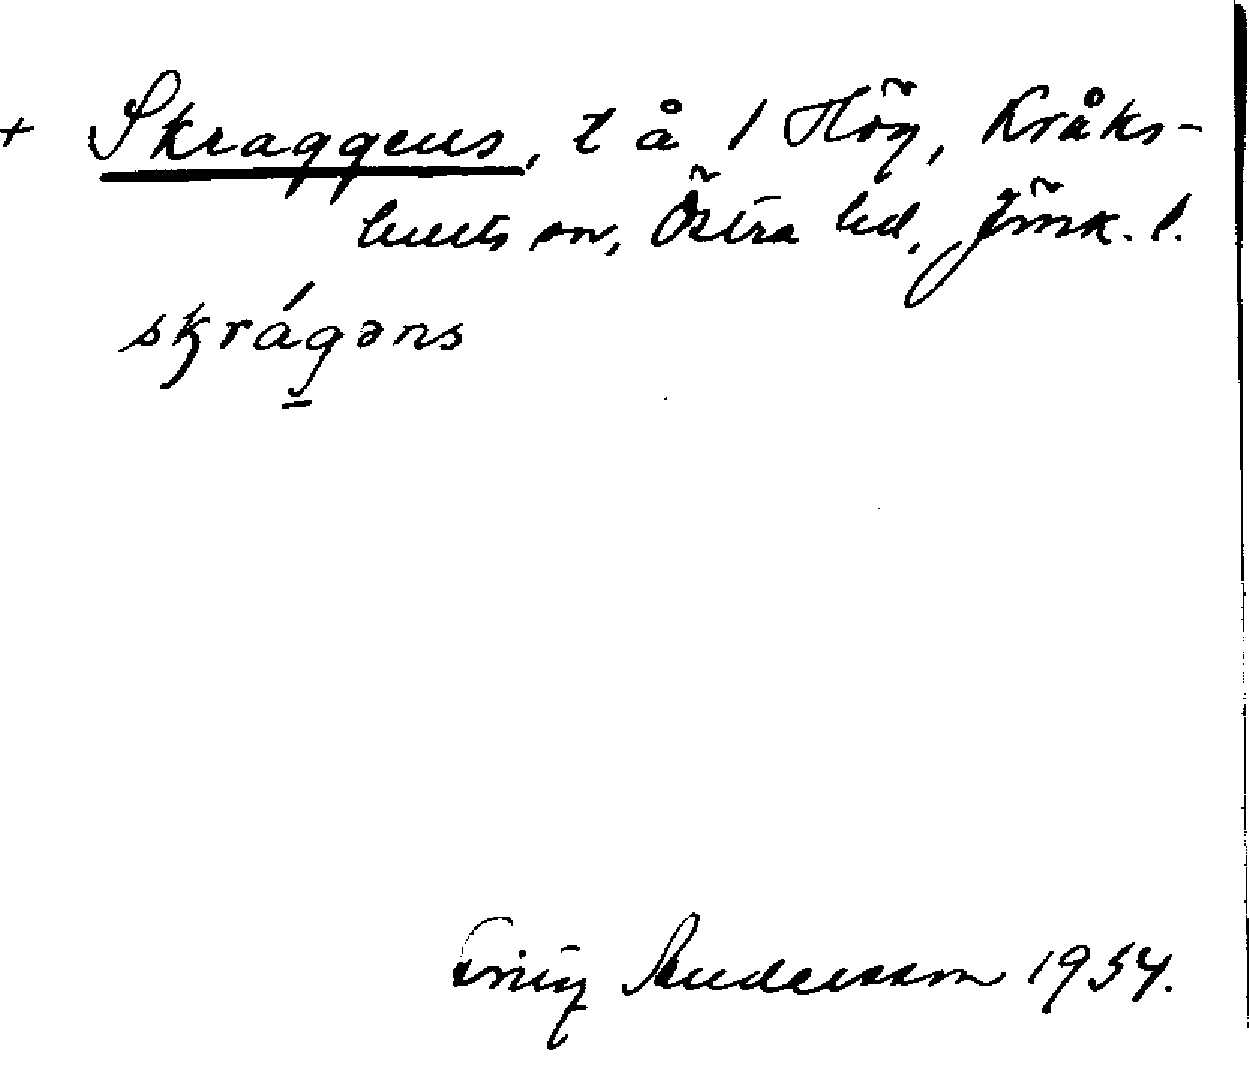 + Skraggens, t å 1 Hög, Kråks-
hults sn, Östra hd, Jönk. l.
skrágəns
Friiz Andersson 1934.